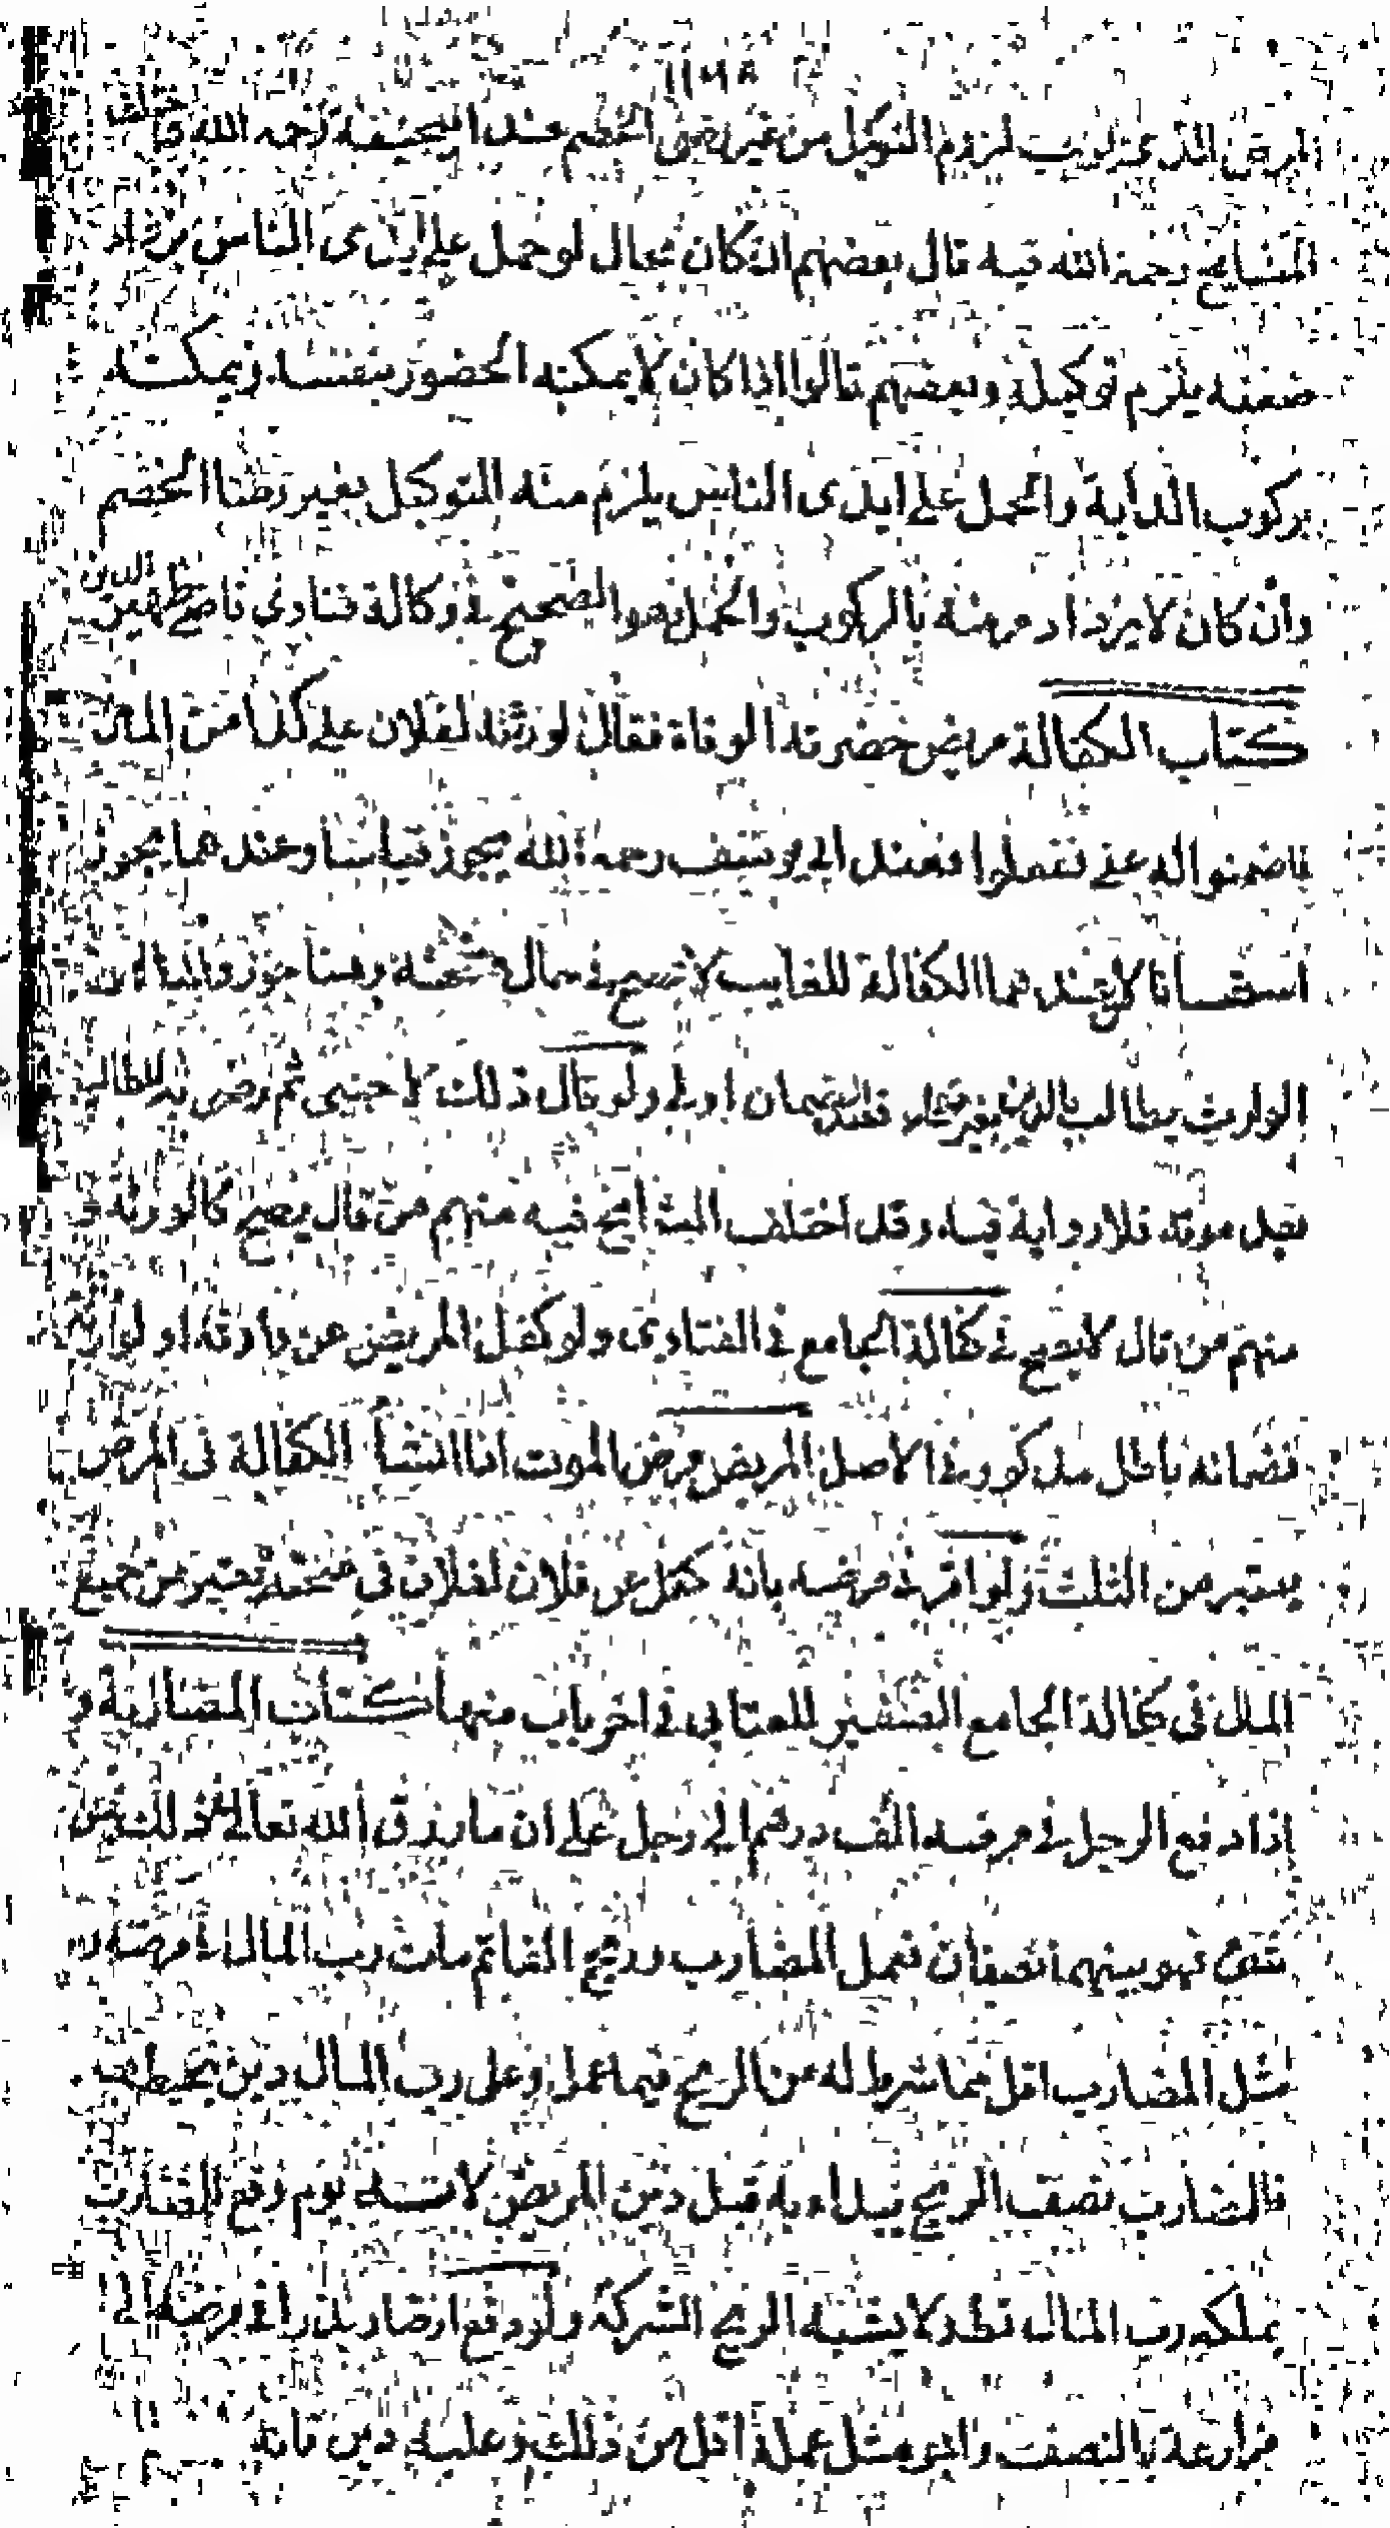 المرض الذي يوجب لزوم التوكيل من غير رضى الخصم عند ابيحنيفة رحمه الله فاختلف
المشايخ رحمة الله فيه قال بعضهم ان كان بحال لو حمل على ايدى الناس يزداد
ضعفه يلزم توكيله وبعضهم قالوا اذا كان لا يمكنه الحضور بنفسه ويمكنه
بركوب الدابة والحمل على ايدى الناس يلزم منه التوكيل بغير رضا الخصم
وان كان لا يزداد مرضه بالركوب والحمل هو الصحيح في وكالة فتاوى قاضي ظهير الدين
كتاب الكفالة مريض حضرته الوفاة فقال لورثته لفلان علي كذا من المال
فاضمنوا له عنى ففعلوا فعند ابى يوسف رحمه الله يجوز قياسا وعندهما يجوز
استحسانا لان عندهما الكفالة للغايب لا تصح في حال صحته وهنا جوز
الوارث يطالب بالدين بغير ضمان فعند الضمان اولى ولو قال ذلك لاجنبى ثم
قبل موته فلا رواية فيه وقد اختلف المشايخ فيه منهم من قال يصح كالورثة و
منهم من قال لا يصح في كفالة الجامع في الفتاوى ولو كفل المريض عن وارثه او لوارثه
فضمانه باطل مذكور في الاصل المريض مرض الموت اذا انشأ الكفالة فى المرض
يعتبر من الثلث ولو اقر في مرضه بانه كفل عن فلان لفلان فى صحته يعتبر من جميع
المال فى كفالة الجامع الصغير للعتابى في اخر باب منها كتاب المضاربة و
اذا دفع الرجل في مرضه الف درهم الى رجل على ان ما رزق الله تعالى في ذلك من
شئ فهو بينهما نصفان فعمل المضارب وربح الفا ثم مات رب المال من مرضه و
مثل المضارب اقل مما شرط له من الربح فيما عمل وعلى رب المال دين يحيط
فللمضارب نصف الربح يبدا به قبل دين المريض لانه يوم دفع للمضارب
يملكه رب المال قط ولا يشبه الربح الشركة ولو دفع ارضا وبذرا في مرضه الى
مزارعة بالنصف واجر مثل عمله اقل من ذلك وعليه دين فانه